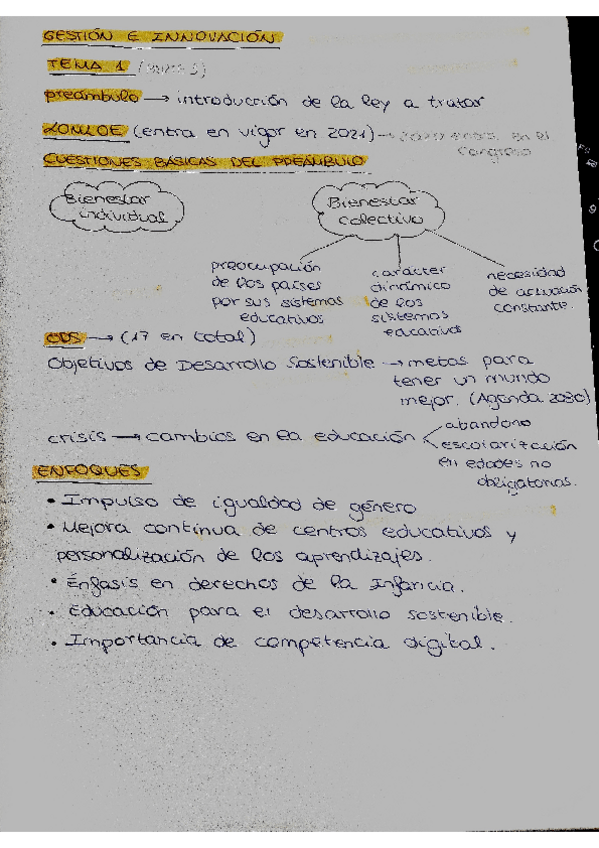 GESTIÓN E INNOVACIÓN
TEMA 1
preámbulo → introducción de la ley a tratar
LOMLOE (entra en vigor en 2021) → en el
Congreso
CUESTIONES BÁSICAS DEL PREÁMBULO
Bienestar individual
Bienestar colectivo
preocupación de los países por sus sistemas educativos
carácter dinámico de los sistemas educativos
necesidad de actuación constante.
ODS → (17 en total)
Objetivos de Desarrollo Sostenible → metas para
tener un mundo
mejor. (Agenda 2030)
crisis → cambios en la educación
abandono
escolarización
en edades no
obligatorias.
ENFOQUES
• Impulso de igualdad de género
• Mejora continua de centros educativos y
personalización de los aprendizajes.
• Énfasis en derechos de la Infancia.
• Educación para el desarrollo sostenible.
• Importancia de competencia digital.